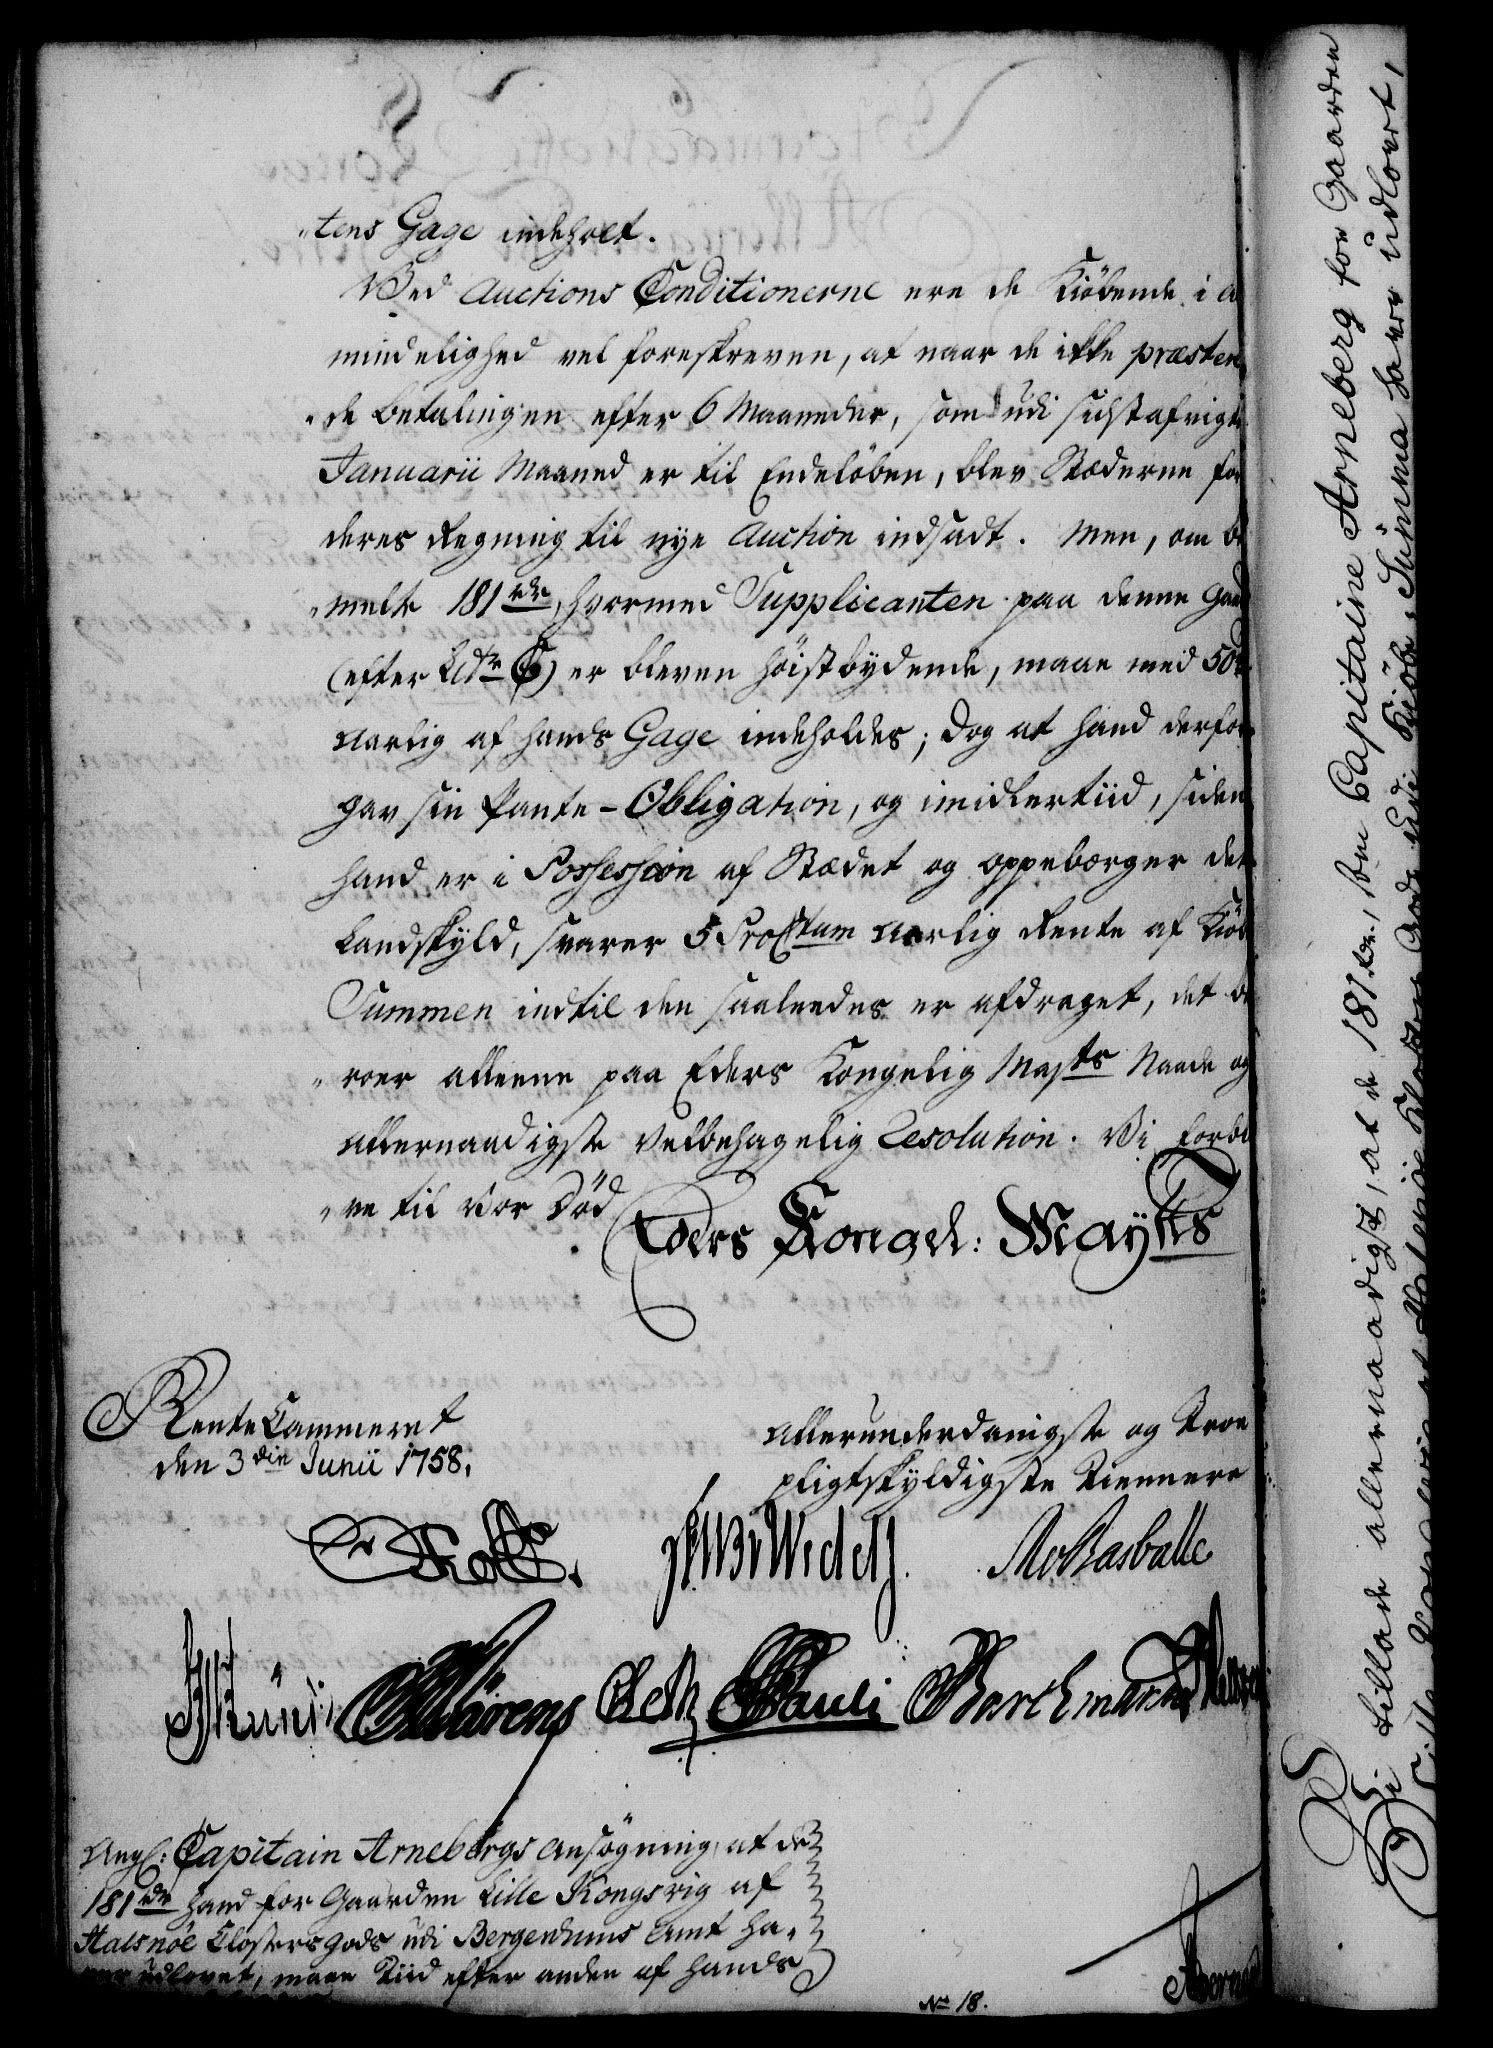 "tens Gage indeholt.
Ved Auctions Conditionerne ere de Kiöbende i A
mindelighed vel foreskreven, at naar de ikke præsten
"de Betalingen efter 6 Maaneder, som udi sidstafvigt
Januarii Maaned er til Endelöben, blev Stæderne for
deres Regning til nye Auction indsadt. Men, om b
"melte 181 rdr, hvormed Supplicanten paa denne Gaa
(efter Litr C) er bleven höistbydende, maae med 50
aarlig af hands Gage indeholdes; dog at hand derfor
gav sin Pante-Obligation, og imidlertiid, siden
hand er i Possession af Stædet og oppebærger det
Landskyld, svarer 5 ProCtum aarlig Rente af Kiöb
Summen indtil den saaledes er afdraget, det be
"roer alleene paa Eders Kongelig Majts Naade og
allernaadigste Velbehagelig Resolution. Vi forbli
"ve til vor Död
Eders Kongel: Mayts
RenteCammeret
den 3 die Junii 1758.
allerunderdanigste og Troe
pligtskyldigste Tiennere
Wedell
Rasballe
Pauli
Angl: Capitain Arnebergs Ansögning, at de
181 rdr hand for Gaarden Lille Kongsvig af
Halsnöe Closters gods udi Bergenhuus Amt ha,
ver udlovet, maae Tiid efter anden af hands
No 18.
Vi tillade allernaadigst, at de 181 rdr., som Capitaine Arneberg for Gaarden
Lille Kongsvig af Halsnöe Closters Gods udi Kiöbe-Summa haver udlovet,